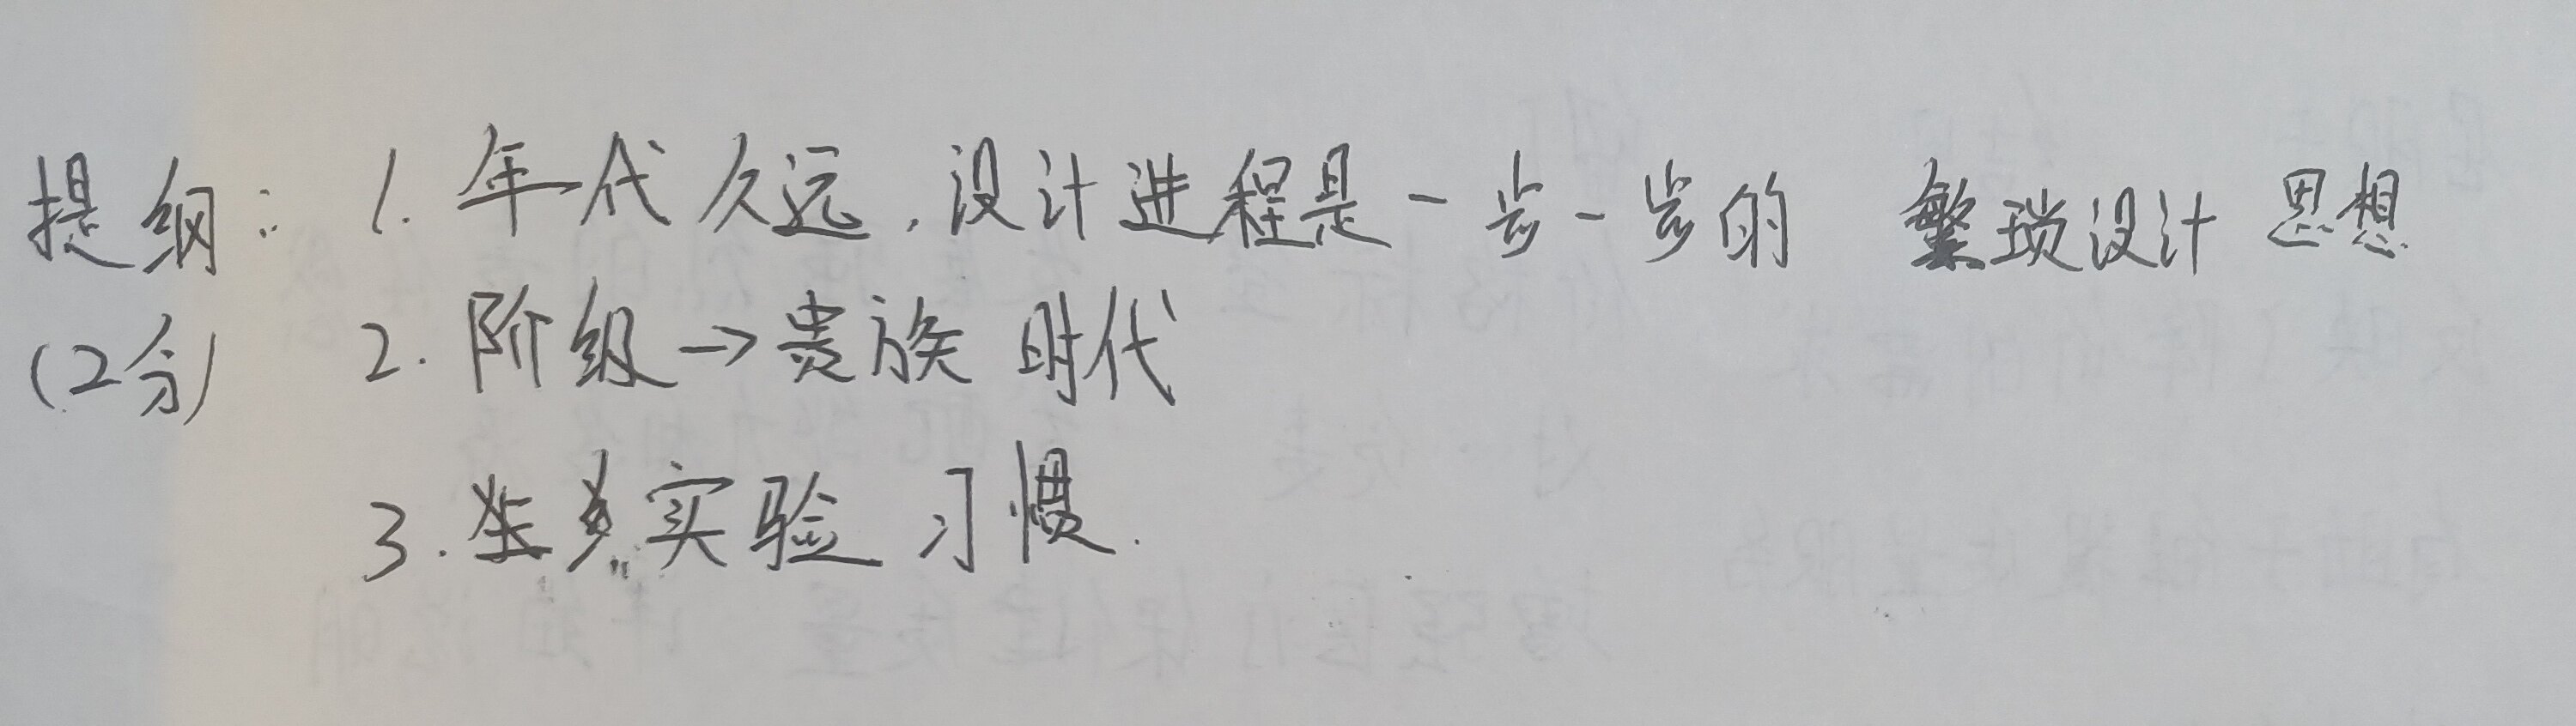 提纲：1. 年代久远，设计进程是一步一步的 繁琐设计 思想
(2分) 2. 阶级→贵族 时代
3. 实验 习惯.